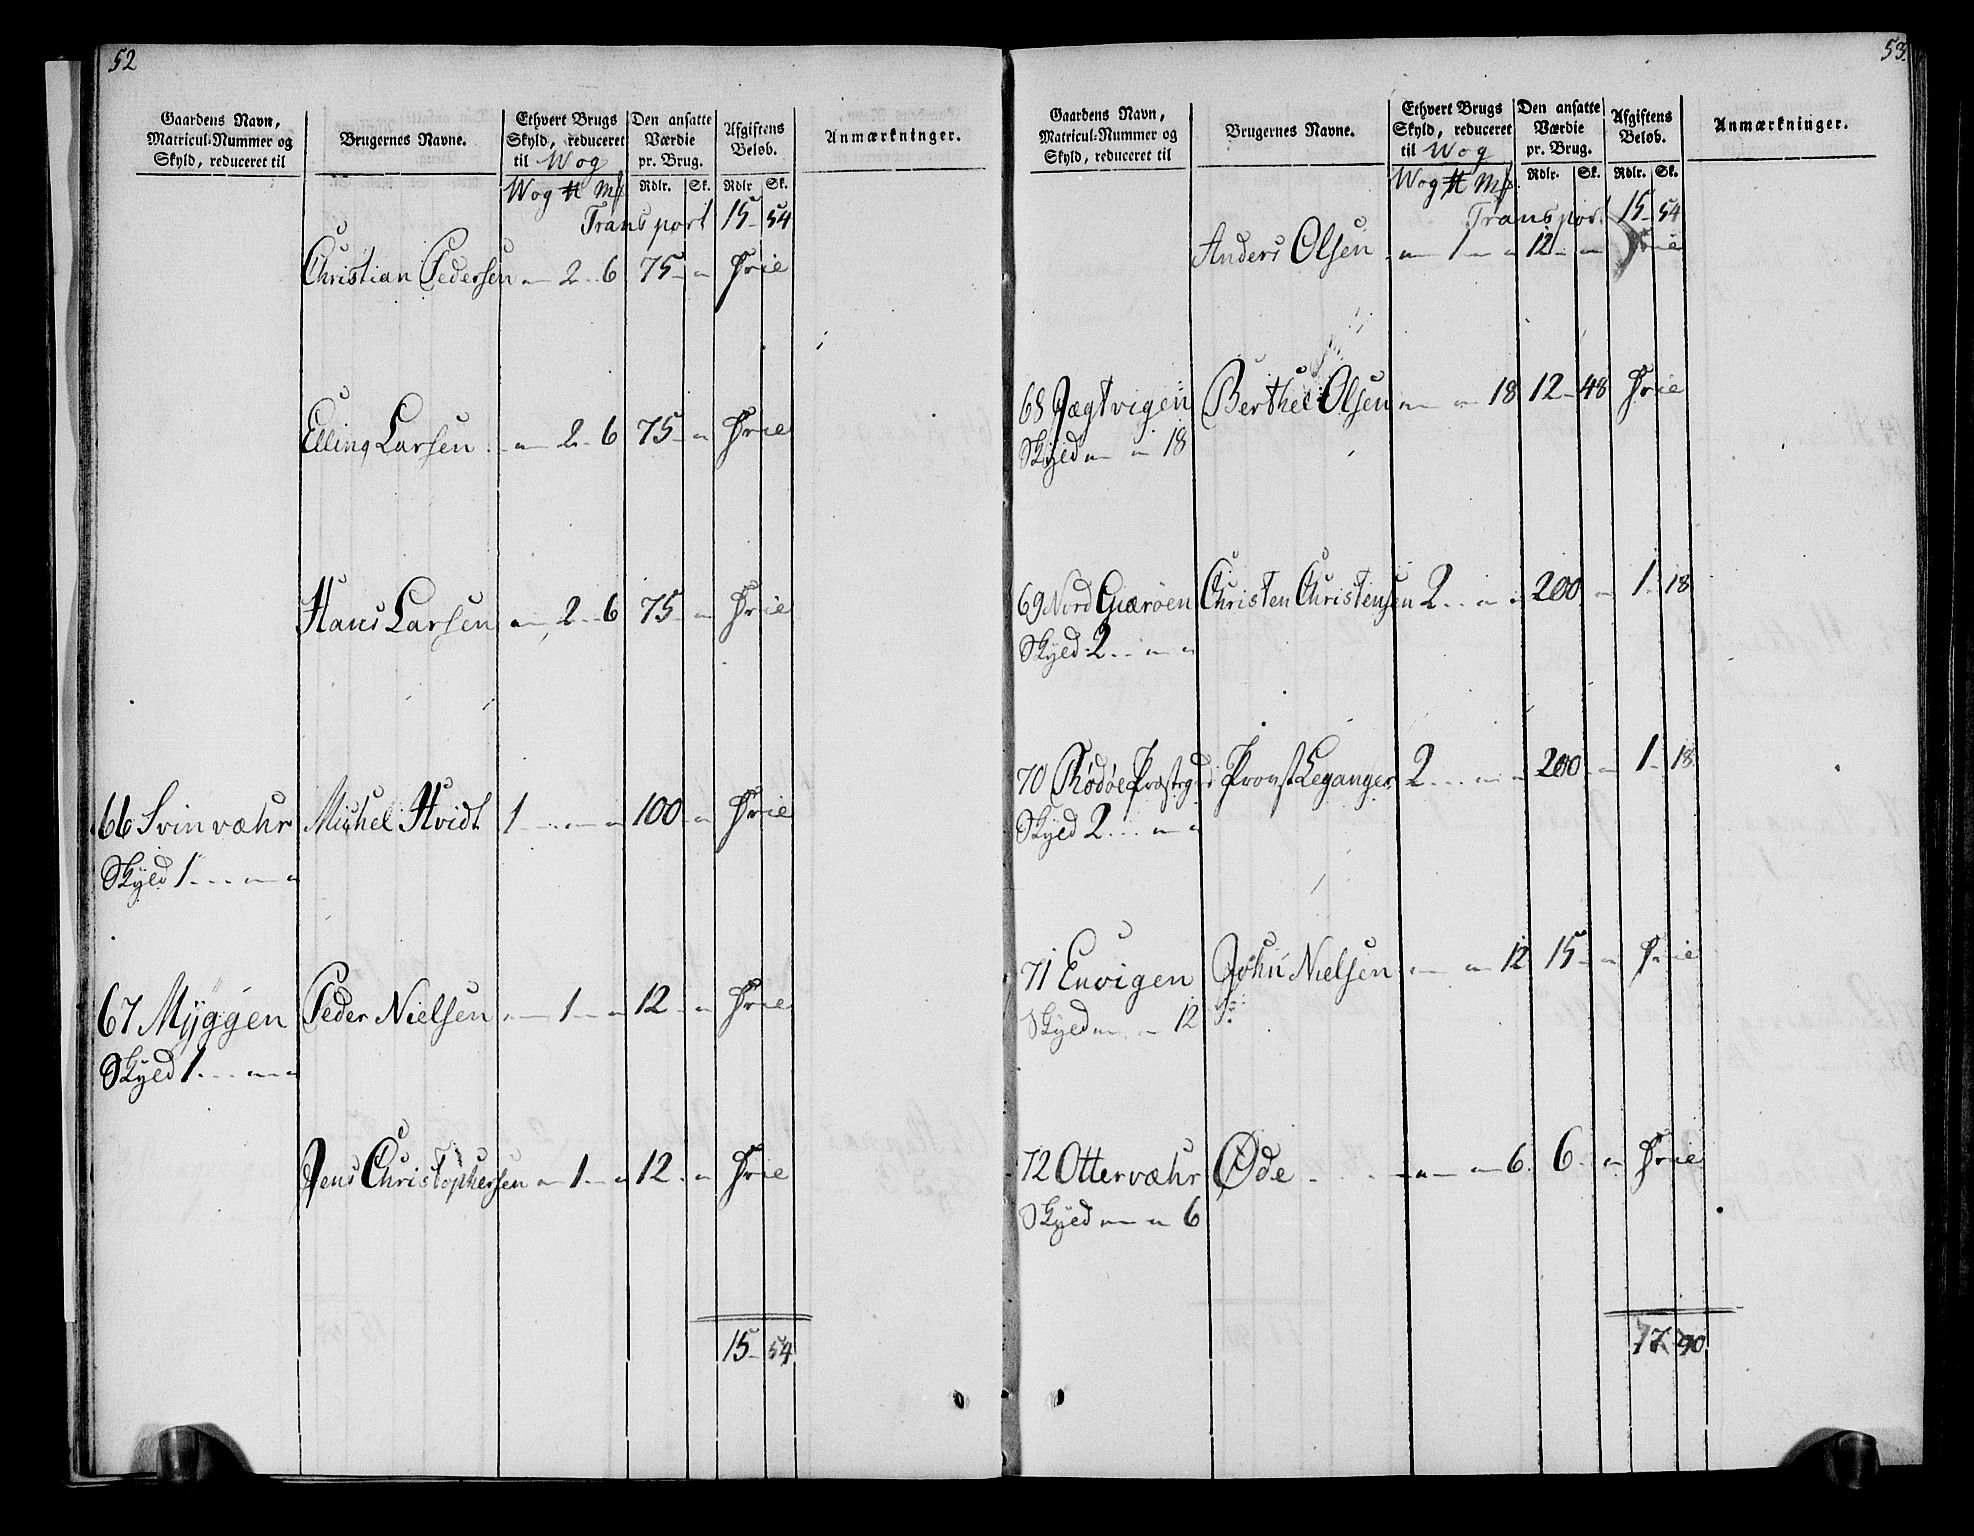 52
Gaardens Navn, Matricul-Nummer og Skyld, reduceret til
Brugernes Navne.
Ethvert Brugs Skyld, reduceret til Wog
Den ansatte Værdie pr. Brug.
Afgiftens Beløb.
Anmærkninger.
Wog ℔ Mk Rdlr. Sk. Rdlr Sk.
Transport 15 - 54
Christian Pedersen " 2 . . 6 75 - " Frie
Elling Larsen " 2 . . 6 75 - " Frie
Hans Larsen " 2 . . 6 75 - " Frie
66 Svinvæhr Michel Hvidt 1 . . " " 100 - " Frie
Skyld 1 . . . " "
67 Mÿggen Peder Nielsen " 1 - " 12 - " Frie
Skyld 1 . . . " "
Jens Christophersen " 1 - " 12 . " Frie
15 - 54
53
Gaardens Navn, Matricul-Nummer og Skyld, reduceret til
Brugernes Navne.
Ethvert Brugs Skyld, reduceret til Wog
Den ansatte Værdie pr. Brug.
Afgiftens Beløb.
Anmærkninger.
Wog ℔ Mk Rdlr. Sk. Rdlr. Sk.
Transport 15 - 54
Anders Olsen " 1 - " 12 - " Frie
68 Jægtvigen Berthel Olsen " " 18 12 - 48 Frie
Skyld " " 18
69 Nord Giærøen Christen Christensen 2 . . " " 200 " 1 . 18
Skyld 2 . . " "
70 Rødøe Præstegrd Provst Leganger 2 . . . " " 200 - " 1 - 18
Skyld 2 . . . " "
71 Envigen John Nielsen " " 12 15 - " Frie
Skyld " " 12
72 Ottervæhr Øde . . . " " 6 6 . " Frie
Skyld " " 6
17 90